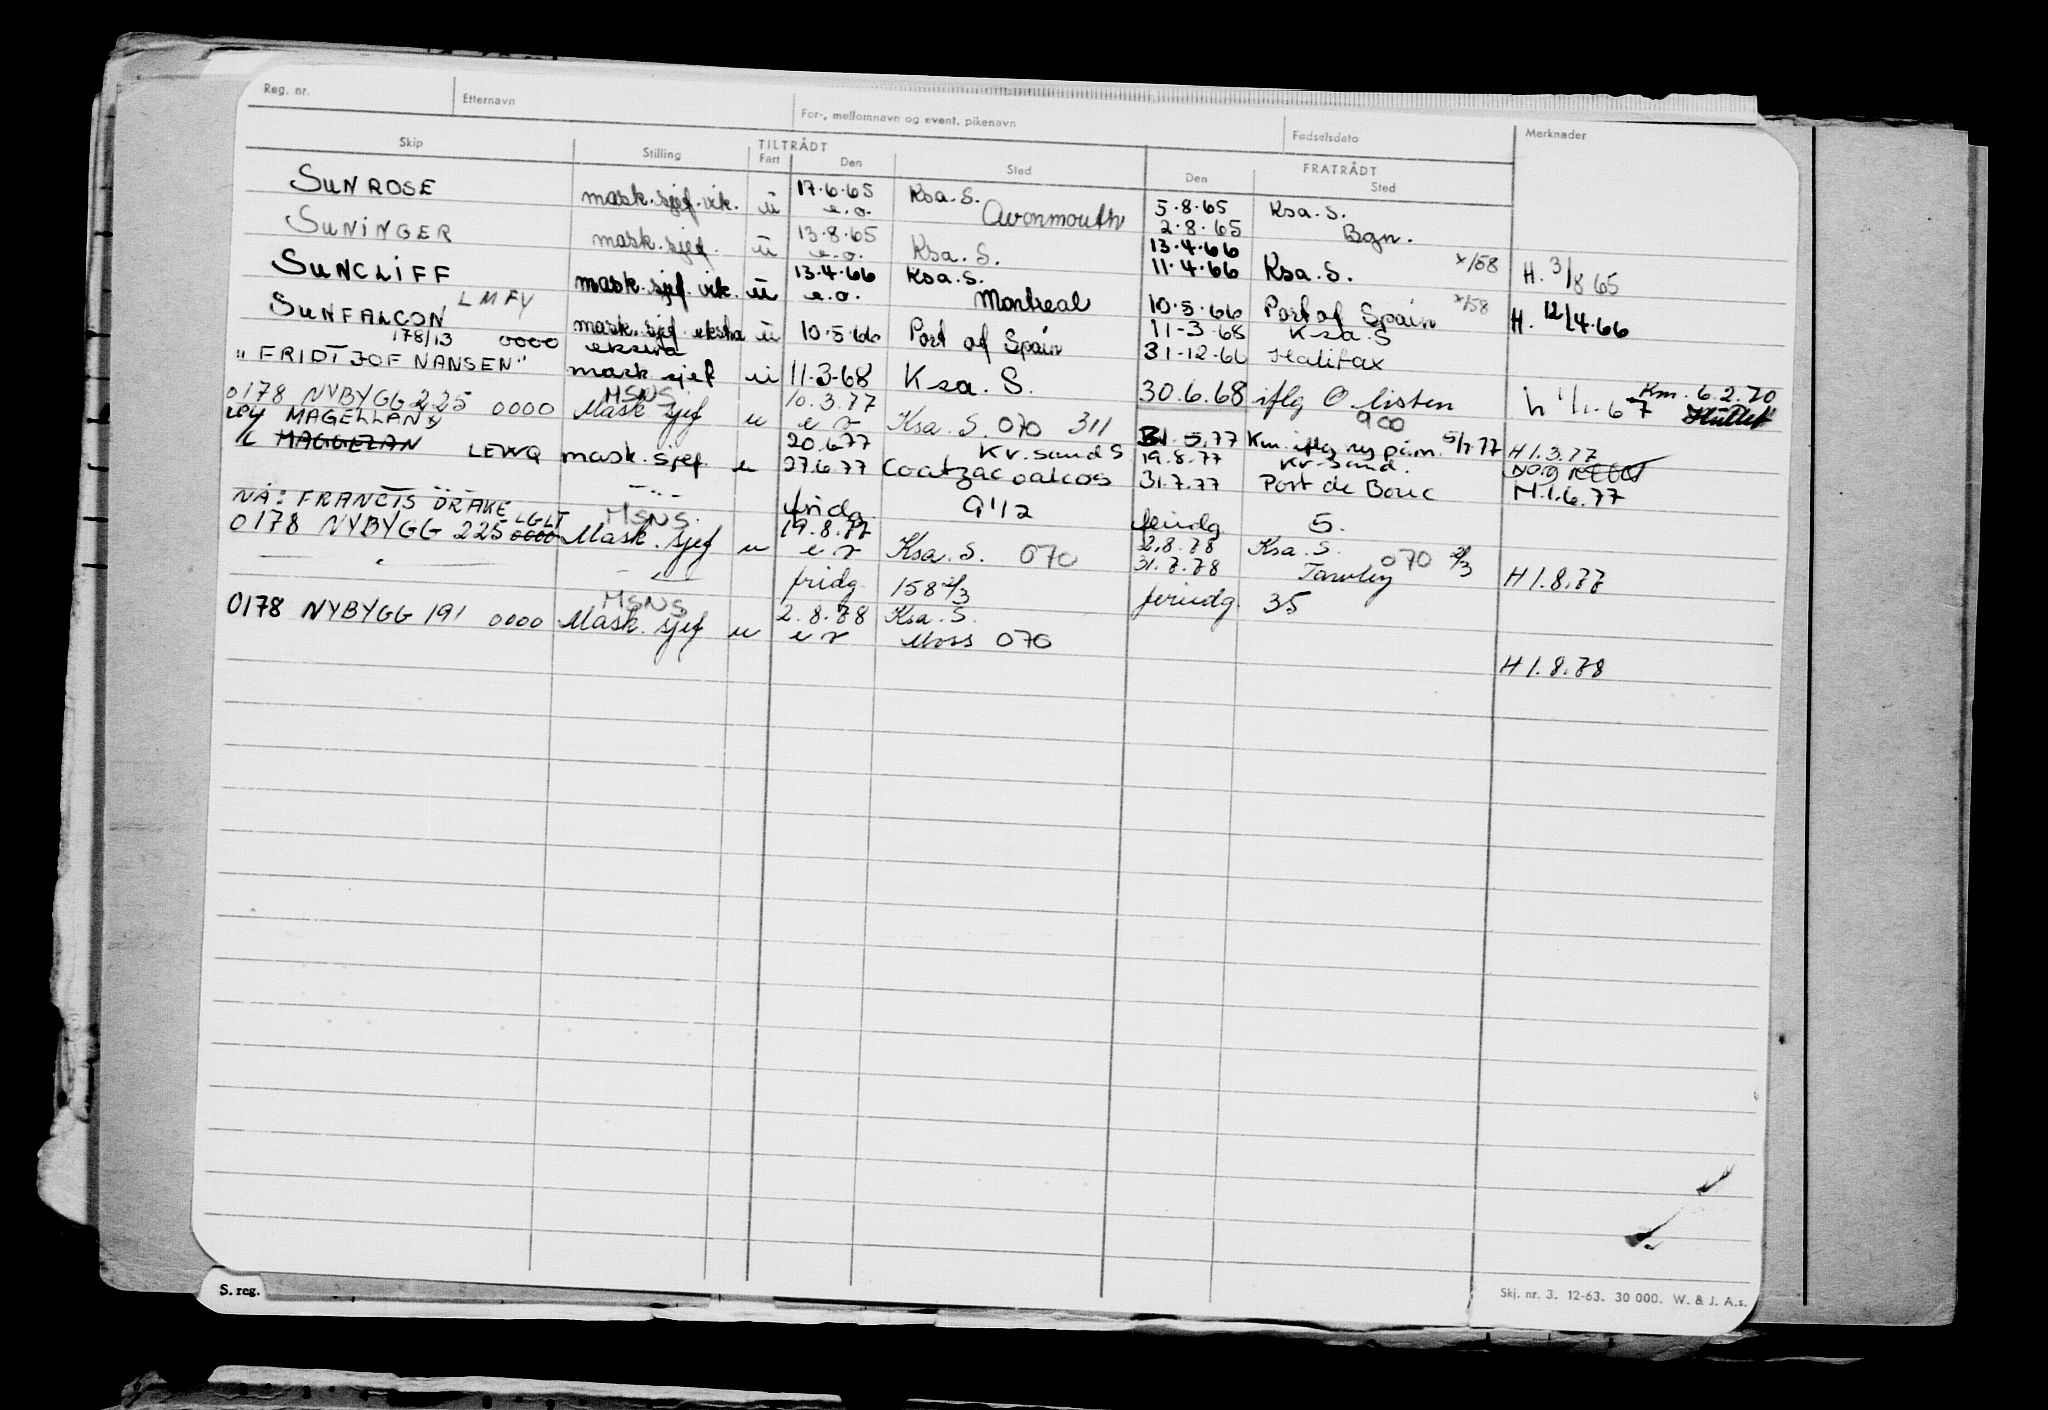 Reg. nr. Etternavn For-, mellomnavn og event. pikenavn Fødselsdato Merknader
Skip Stilling TILTRÅDT Fart Den Sted FRATRÅDT Den Sted
SUNROSE mask.sjef.vik. u 17.6.65 Ksa.S. 5.8.65 Ksa.S.
e.o. Avonmouth 2.8.65 Bgn.
SUNINGER mask.sjef. u 13.8.65 Ksa.S. 13.4.66 Ksa.S. x/158 H. 3/8 65
e.o. 11.4.66
SUNCLIFF mask.sjef.vik. u 13.4.66 Ksa.S. 10.5.66 Port of Spain x/158 H. 12/4.66
LMFV e.o. Montreal
SUNFALCON mask.sjef ekstra u 10.5.66 Port of Spain 11-3-68 Ksa.S
178/13 0000 ekstra 31-12-66 Halifax
"FRIDTJOF NANSEN" mask.sjef u 11.3.68 Ksa.S. 30.6.68 iflg O listen h 1/1-67 Km. 6.2.70
MSNS 900
0178 NYBYGG 225 0000 Mask sjef u 10.3.77 Ksa.S. 070 311 31.5.77 Km. iflg 5/7.77 H 1.3.77
MAGELLAN 20.6.77 Kv.sand S 19.8.77 Kr.sand.
MAGGELAN LEWQ mask.sjef. u 27.6.77 Coatzacoalcos 31.7.77 Port de Bouc M.1.6.77
-"- fridg. 9 1/2 feridg 5.
NÅ: FRANCIS DRAKE LGLT MSNS.
0178 NYBYGG 225 0000 Mask. sjef u 19.8.77 Ksa.S. 070 2.8.78 Ksa.S. 070 2/3
31.7.78 H 1.8.77
-"- -"- fridg. 158 2/3 feriedg. 35
MSNS
0178 NYBYGG 191 0000 Mask. sjef u 2.8.78 Ksa.S.
Moss 070
H 1.8.78
S. reg. Skj. nr. 3. 12-63. 30 000. W. & J. A.s.